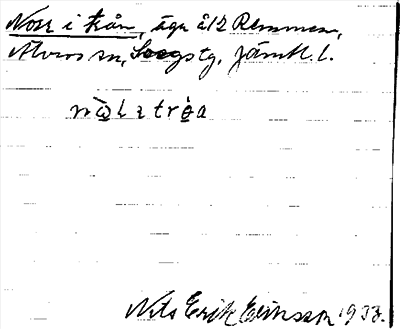 Norr i trån, ägor å 1/2 Remmen,
Älvros sn, Svegs tg, Jämtl. l.
nò̱lɩtrè̱a
Nils Erik Eriksson 1933.